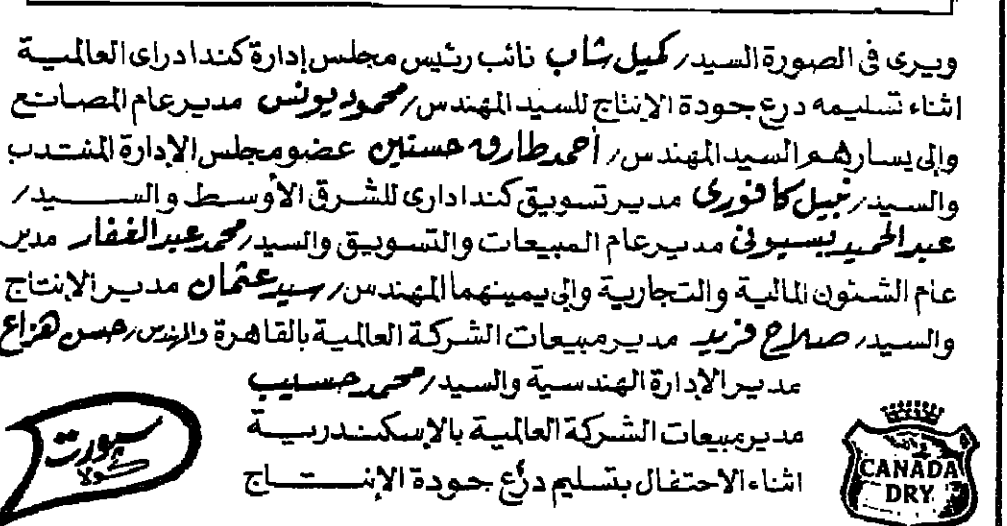 ويرى فى الصورة السيد/ كميل شاب نائب رئيس مجلس إدارة كندا دراى العالمية
اثناء تسليمه درع جودة الإنتاج للسيد المهندس/ محمود يونس مدير عام المصانع
وإلى يسارهم السيد المهندس/ أحمد طارق حسنين عضو مجلس الإدارة المنتدب
والسيد/ نبيل كافورى مدير تسويق كندا دارى للشرق الأوسط والسيد/
عبد الحميد بسيونى مدير عام المبيعات والتسويق والسيد/ محمد عبد الغفار مدير
عام الشئون المالية والتجارية وإلى يمينهما المهندس/ سيد عثمان مدير الإنتاج
والسيد/ صلاح فريد مدير مبيعات الشركة العالمية بالقاهرة والمهندس/ حسن هزاع
مدير الإدارة الهندسية والسيد/ محمد حسيب
مدير مبيعات الشركة العالمية بالإسكندرية
اثناء الاحتفال بتسليم درع جودة الإنتاج
سبورت
كولا
CANADA
DRY